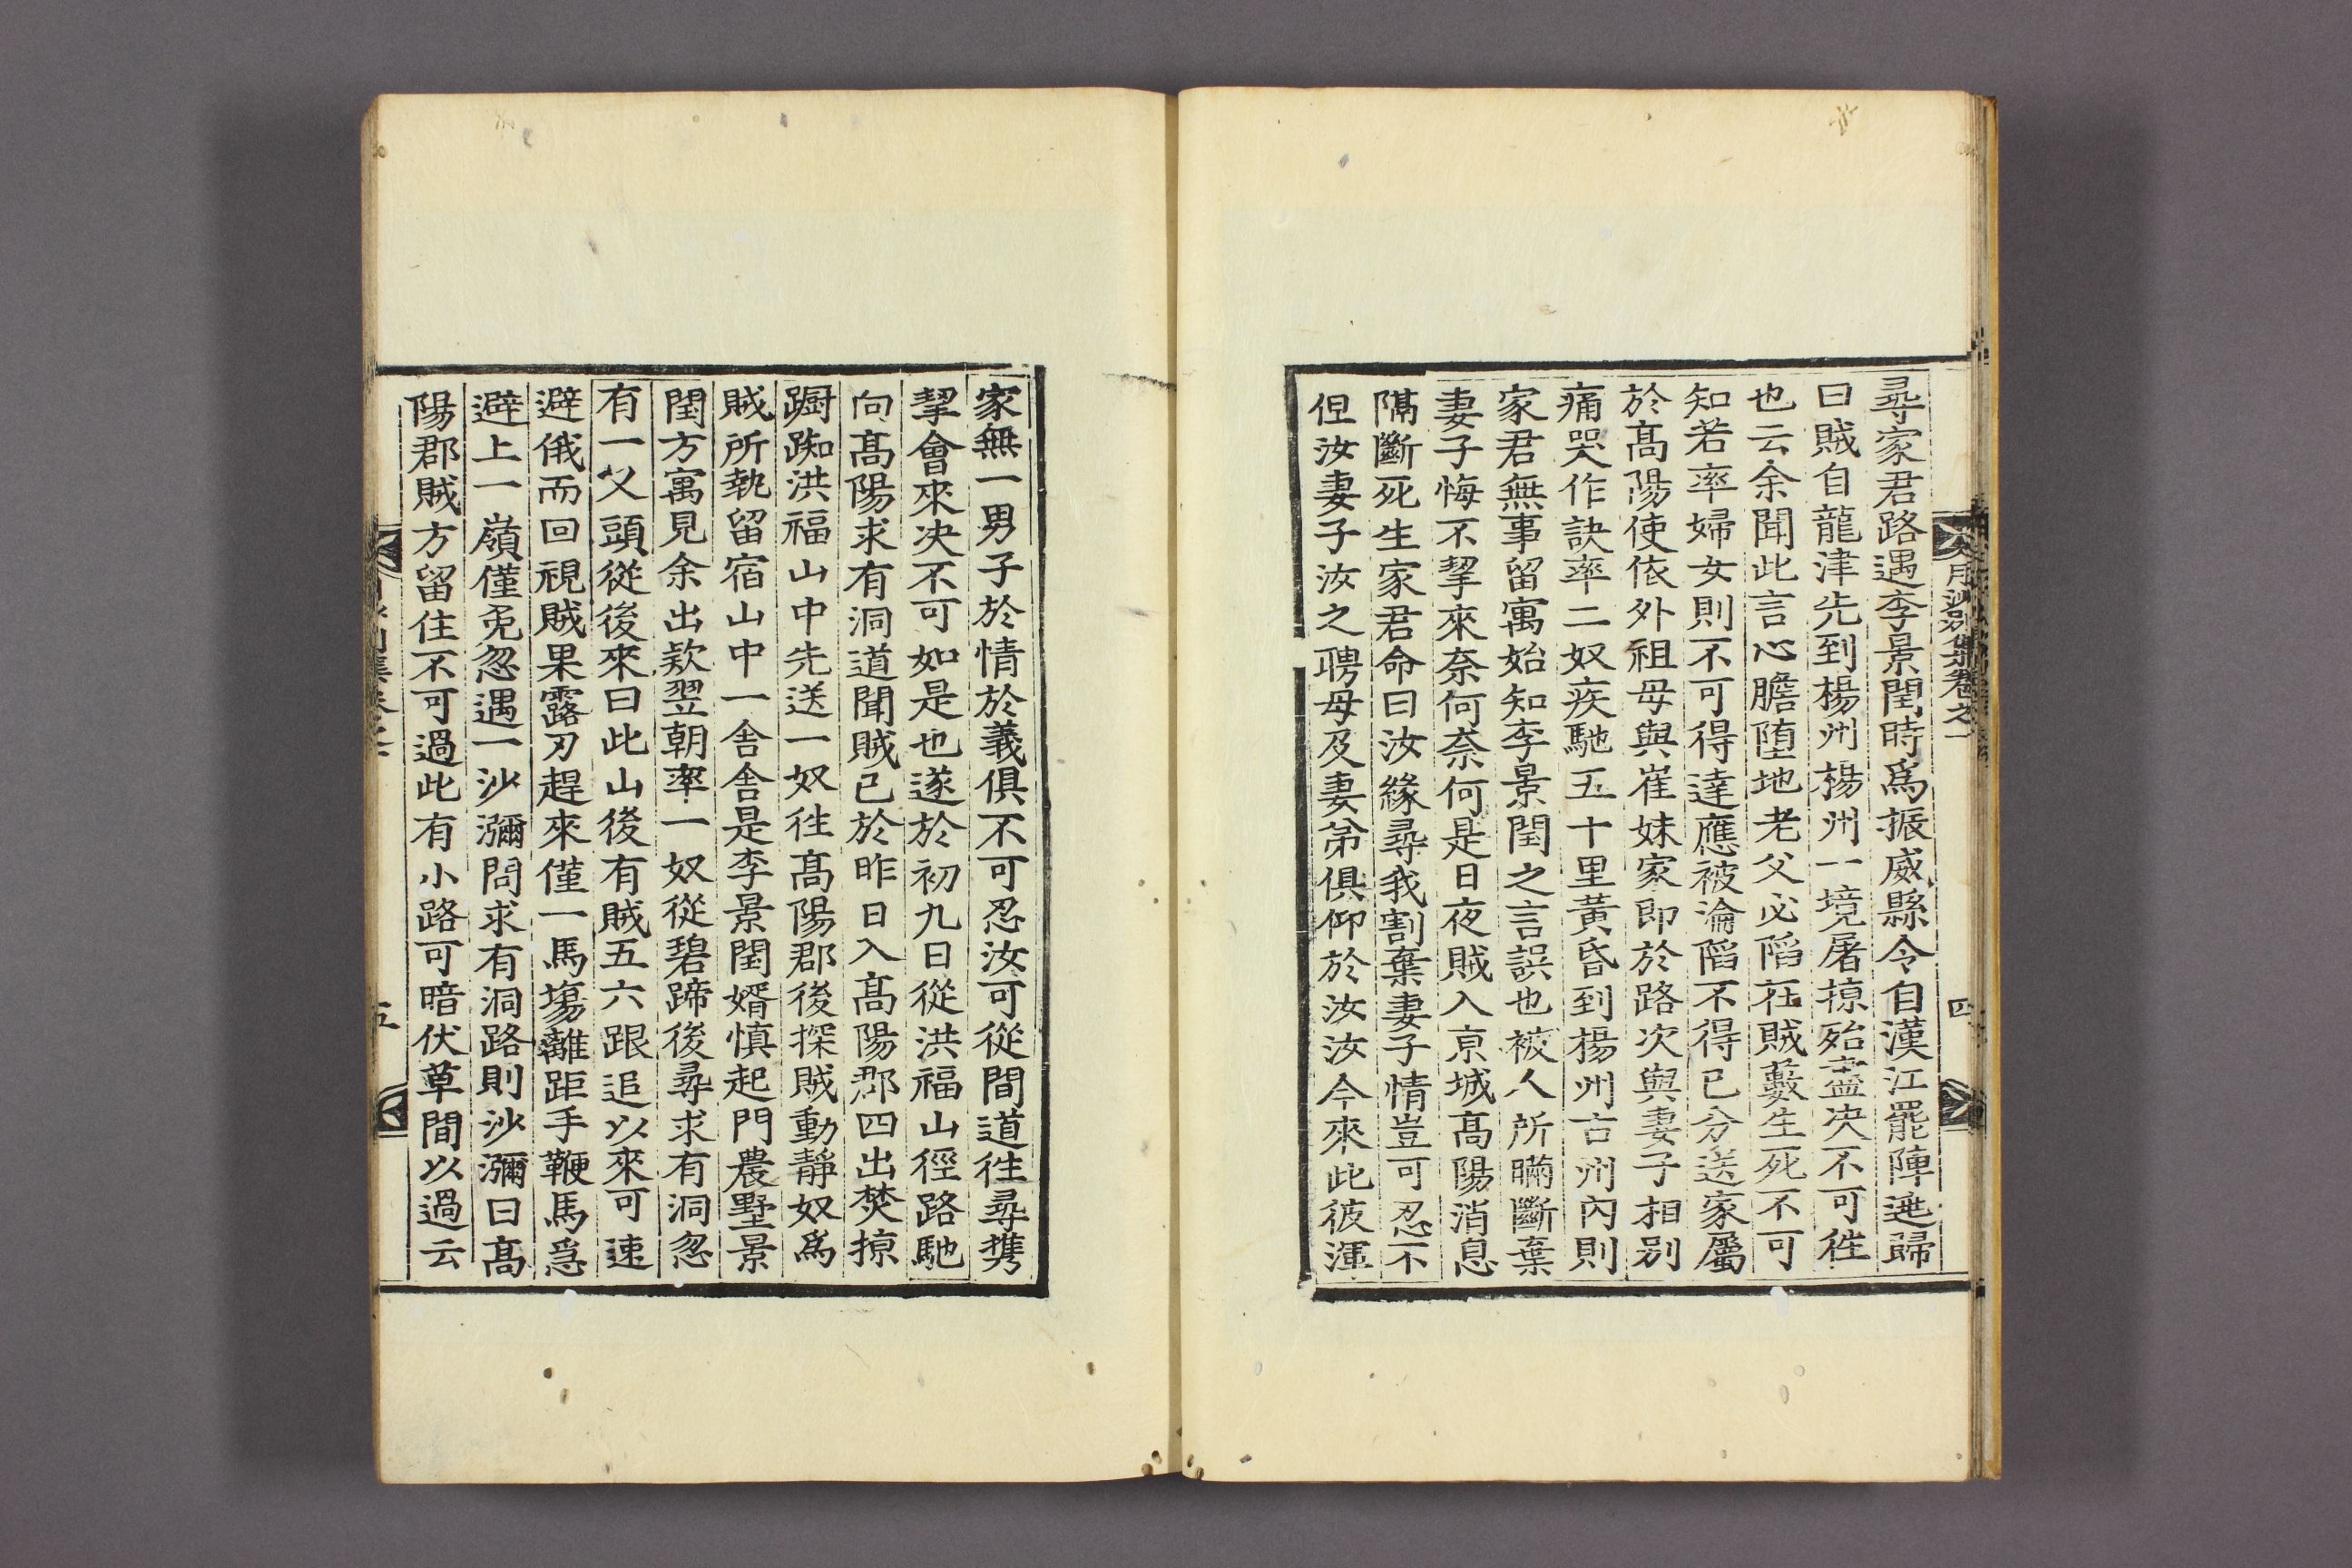 月沙別集卷之一
四
尋家君路遇李景閏時爲振威縣令自漢江罷陣逃歸
曰賊自龍津先到楊州楊州一境屠掠殆盡決不可徃
也云余聞此言心膽墮地老父必䧟在賊藪生死不可
知若率婦女則不可得達應被淪䧟不得已分送家屬
於髙陽使依外祖母與崔妹家即於路次與妻子相別
痛哭作訣率二奴疾馳五十里黃昏到楊州古州內則
家君無事留寓始知李景閏之言誤也被人所瞞斷棄
妻子悔不挈來奈何奈何是日夜賊入亰城髙陽消息
隔斷死生家君命曰汝緣尋我割棄妻子情豈可忍不
但汝妻子汝之聘母及妻弟俱仰於汝汝今來此彼渾
家無一男子於情於義俱不可忍汝可從間道徃尋携
挈會來決不可如是也遂於初九日從洪福山徑路馳
向髙陽求有洞道聞賊已於昨日入髙陽郡四出焚掠
踟蹰洪福山中先送一奴徃髙陽郡後探賊動靜奴爲
賊所執留宿山中一舍舍是李景閏婿愼起門農墅景
閏方寓見余出欵翌朝率一奴從碧蹄後尋求有洞忽
有一乂頭從後來曰此山後有賊五六跟追以來可速
避俄而回視賊果露刃趕來僅一馬場離距手鞭馬急
避上一嶺僅免忽遇一沙彌問求有洞路則沙彌曰髙
陽郡賊方留住不可過此有小路可暗伏草間以過云
五